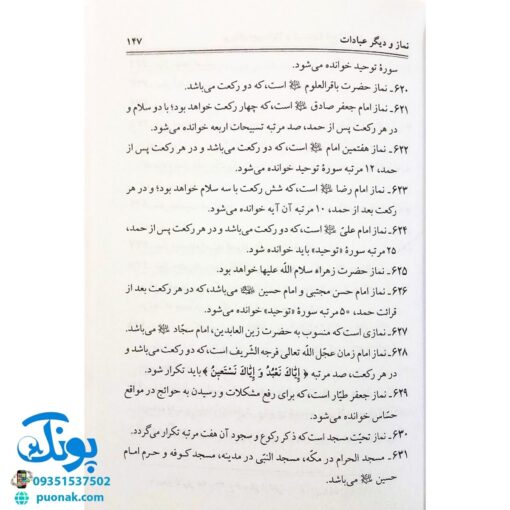 نماز و دیگر عبادات ۱۴۷
سورهٔ توحید خوانده می‌شود.
۶۲۰ـ نماز حضرت باقرالعلوم ﷷ است،که دو رکعت می‌باشد.
۶۲۱ـ نماز امام جعفر صادق ﷷ است، که چهار رکعت خواهد بود؛ با دو سلام و
در هر رکعت پس از حمد، صد مرتبه تسبیحات اربعه خوانده می‌شود.
۶۲۲ـ نماز هفتمین امام ﷷ است، که دو رکعت می‌باشد و در هر رکعت پس از
حمد، ۱۲ مرتبه سورهٔ توحید خوانده می‌شود.
۶۲۳ـ نماز امام رضا ﷷ است،که شش رکعت با سه سلام خواهد بود؛ و در هر
رکعت بعد از حمد، ۱۰ مرتبه آن آیه خوانده می‌شود.
۶۲۴ـ نماز امام علیّ ﷷ است،که دو رکعت می‌باشد و در هر رکعت پس از حمد،
۲۵ مرتبه سورهٔ «توحید» باید خوانده شود.
۶۲۵ـ نماز حضرت زهراء سلام اللّه علیها خواهد بود.
۶۲۶ـ نماز امام حسن مجتبی و امام حسین می‌باشد،که در هر رکعت بعد از
قرائت حمد، ۵۰ مرتبه سورهٔ «توحید» خوانده می‌شود.
۶۲۷ـ نمازی است که منسوب به حضرت زین العابدین، امام سجّاد ﷷ می‌باشد.
۶۲۸ـ نماز امام زمان عجّل اللّه تعالی فرجه الشّریف است،که دو رکعت می‌باشد و
در هر رکعت، صد مرتبه ﴿ إِیّاكَ نَعْبُدُ وَ إِیّاكَ نَسْتَعینُ ﴾ باید تکرار شود.
۶۲۹ـ نماز جعفر طیّار است، که برای رفع مشکلات و رسیدن به حوائج در مواقع
حسّاس خوانده می‌شود.
۶۳۰ـ نماز تحیّت مسجد است که ذکر رکوع و سجود آن هفت مرتبه تکرار می‌گردد.
۶۳۱ـ مسجد الحرام در مکّه، مسجد النبّی در مدینه، مسجد کوفه و حرم امام
حسین ﷷ می‌باشد.
پونک
09351537502
puonak.com